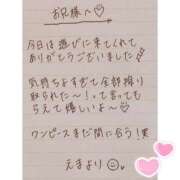 お兄様へ♡
今日は遊びに来てくれて
ありがとうございました
気持ちよすぎて全部搾り
取られた〜!って言っても
らえて嬉しいよ〜♡
ワンピースまだ間に合う!笑
えまより